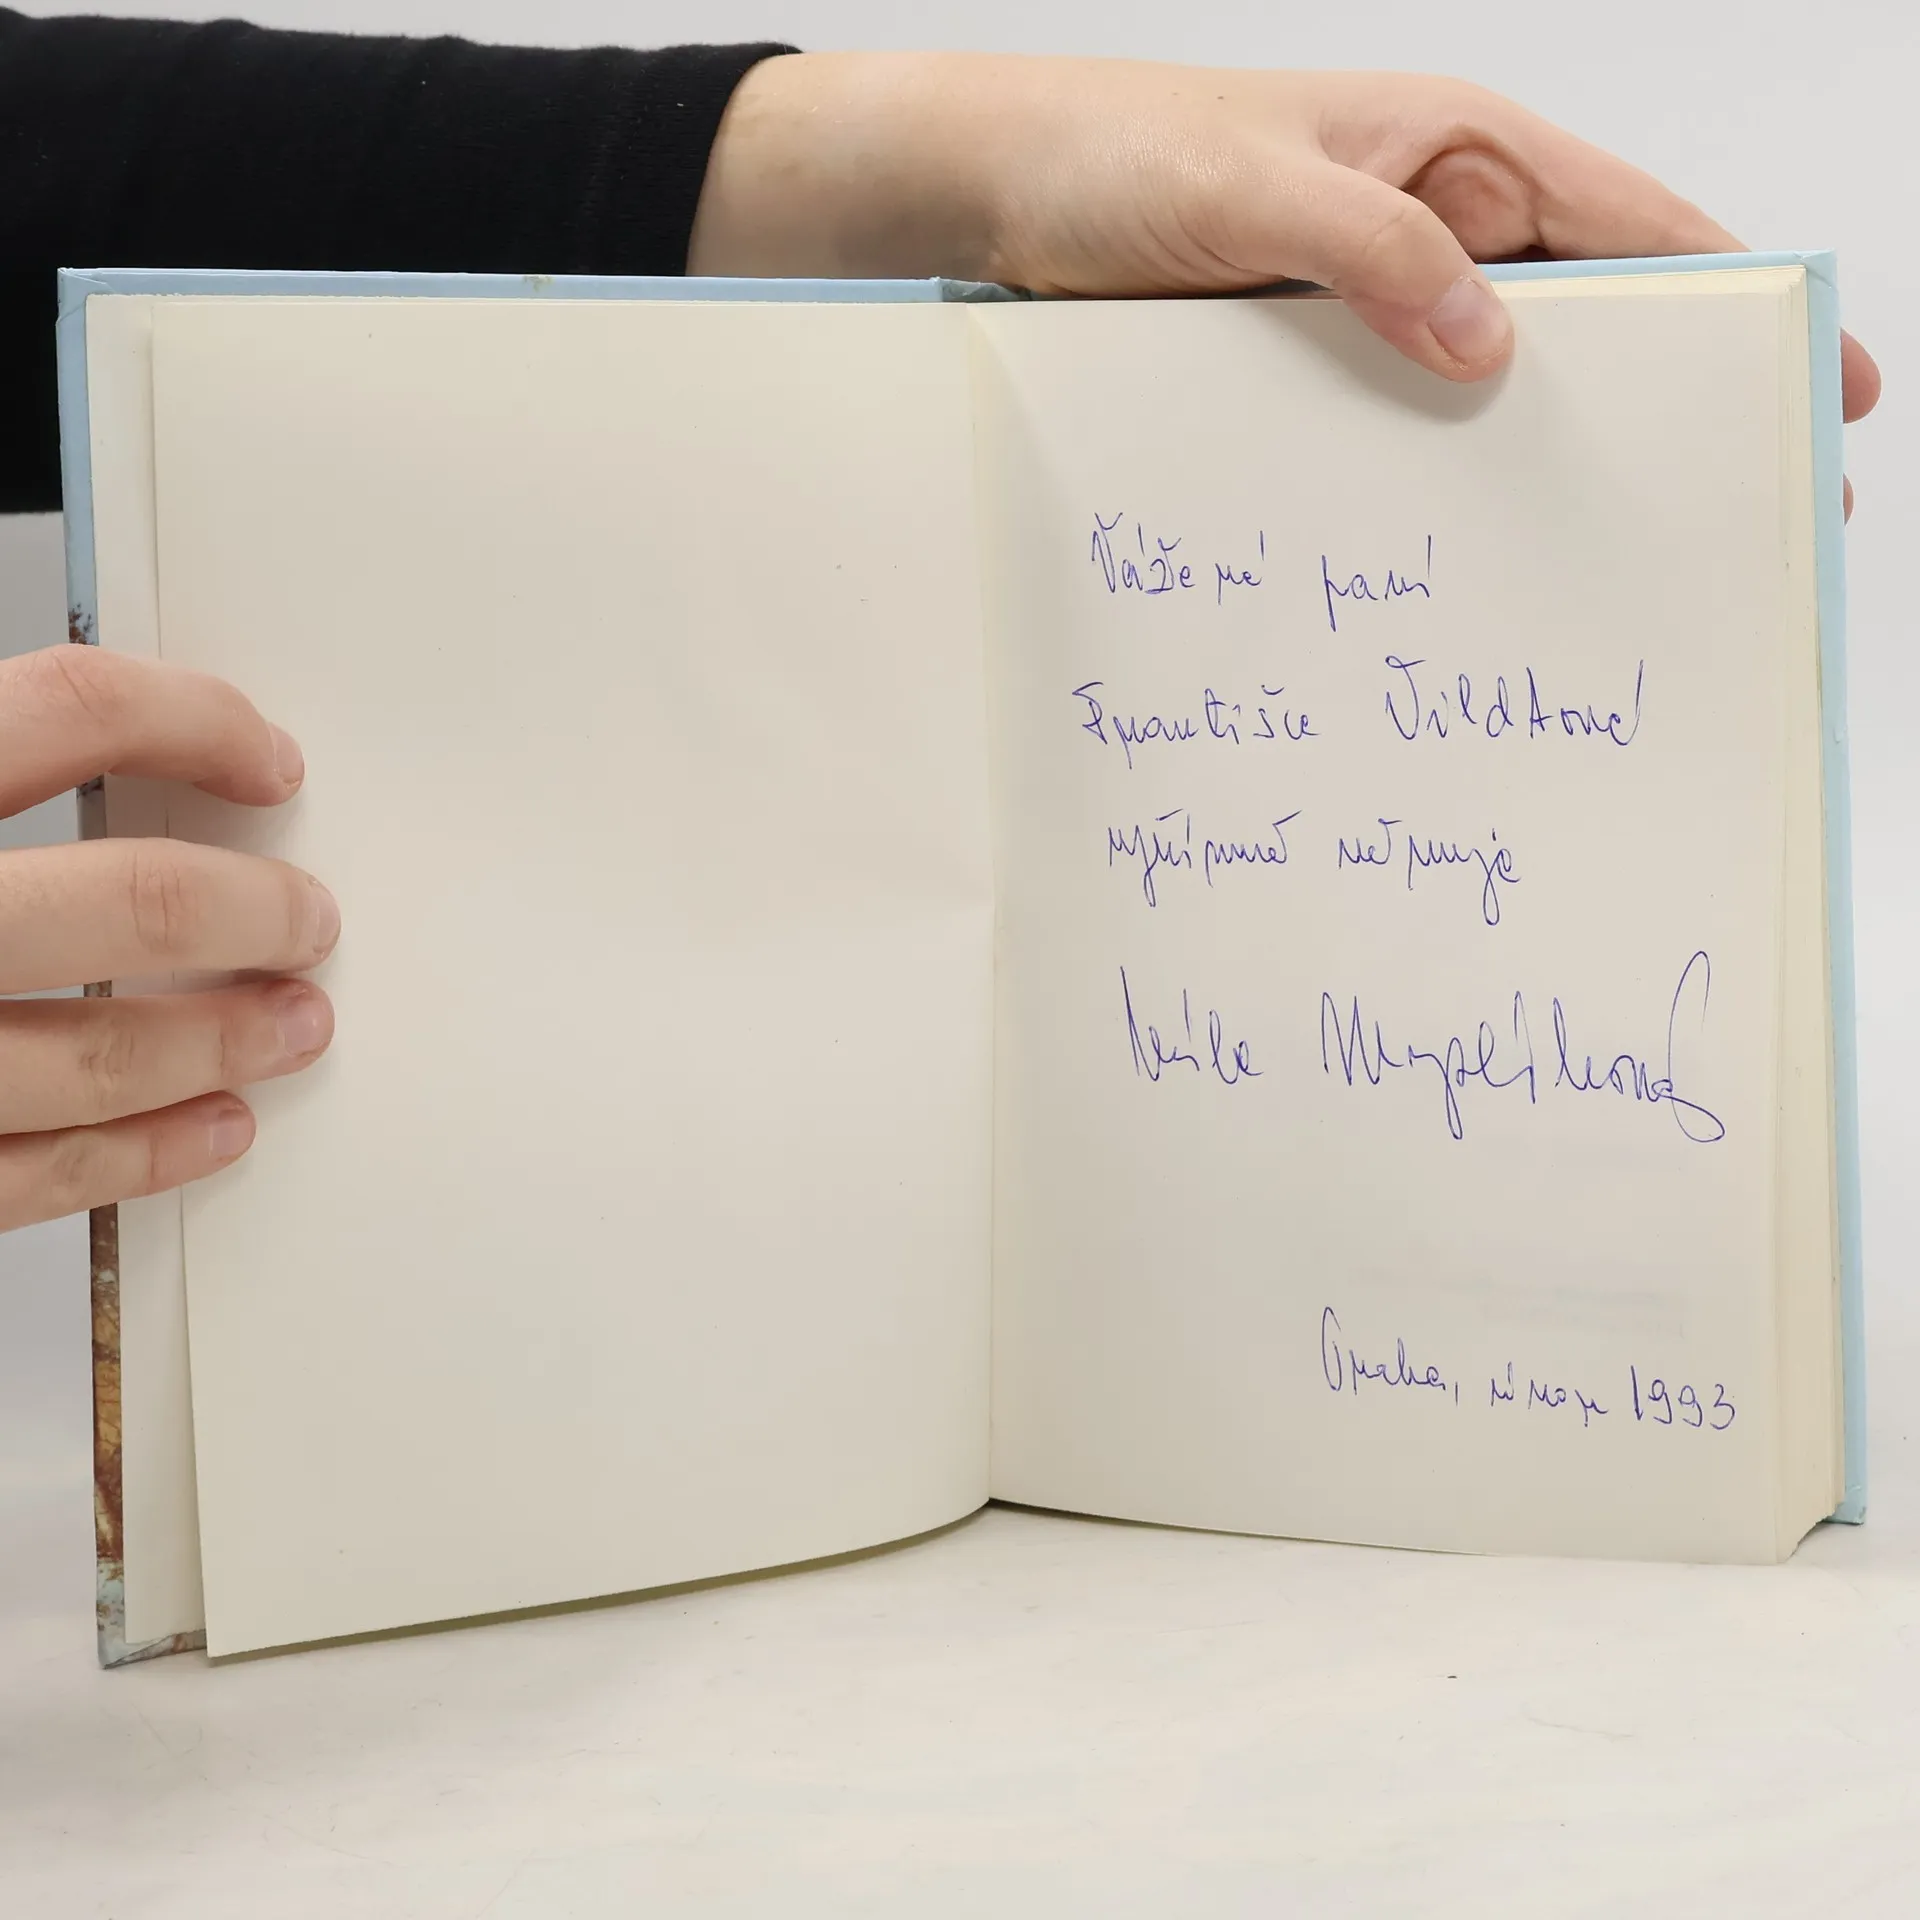 Vážené paní
Františce Vildtové
upřímně věnuje
Míla Myslíková
Praha, únor 1993